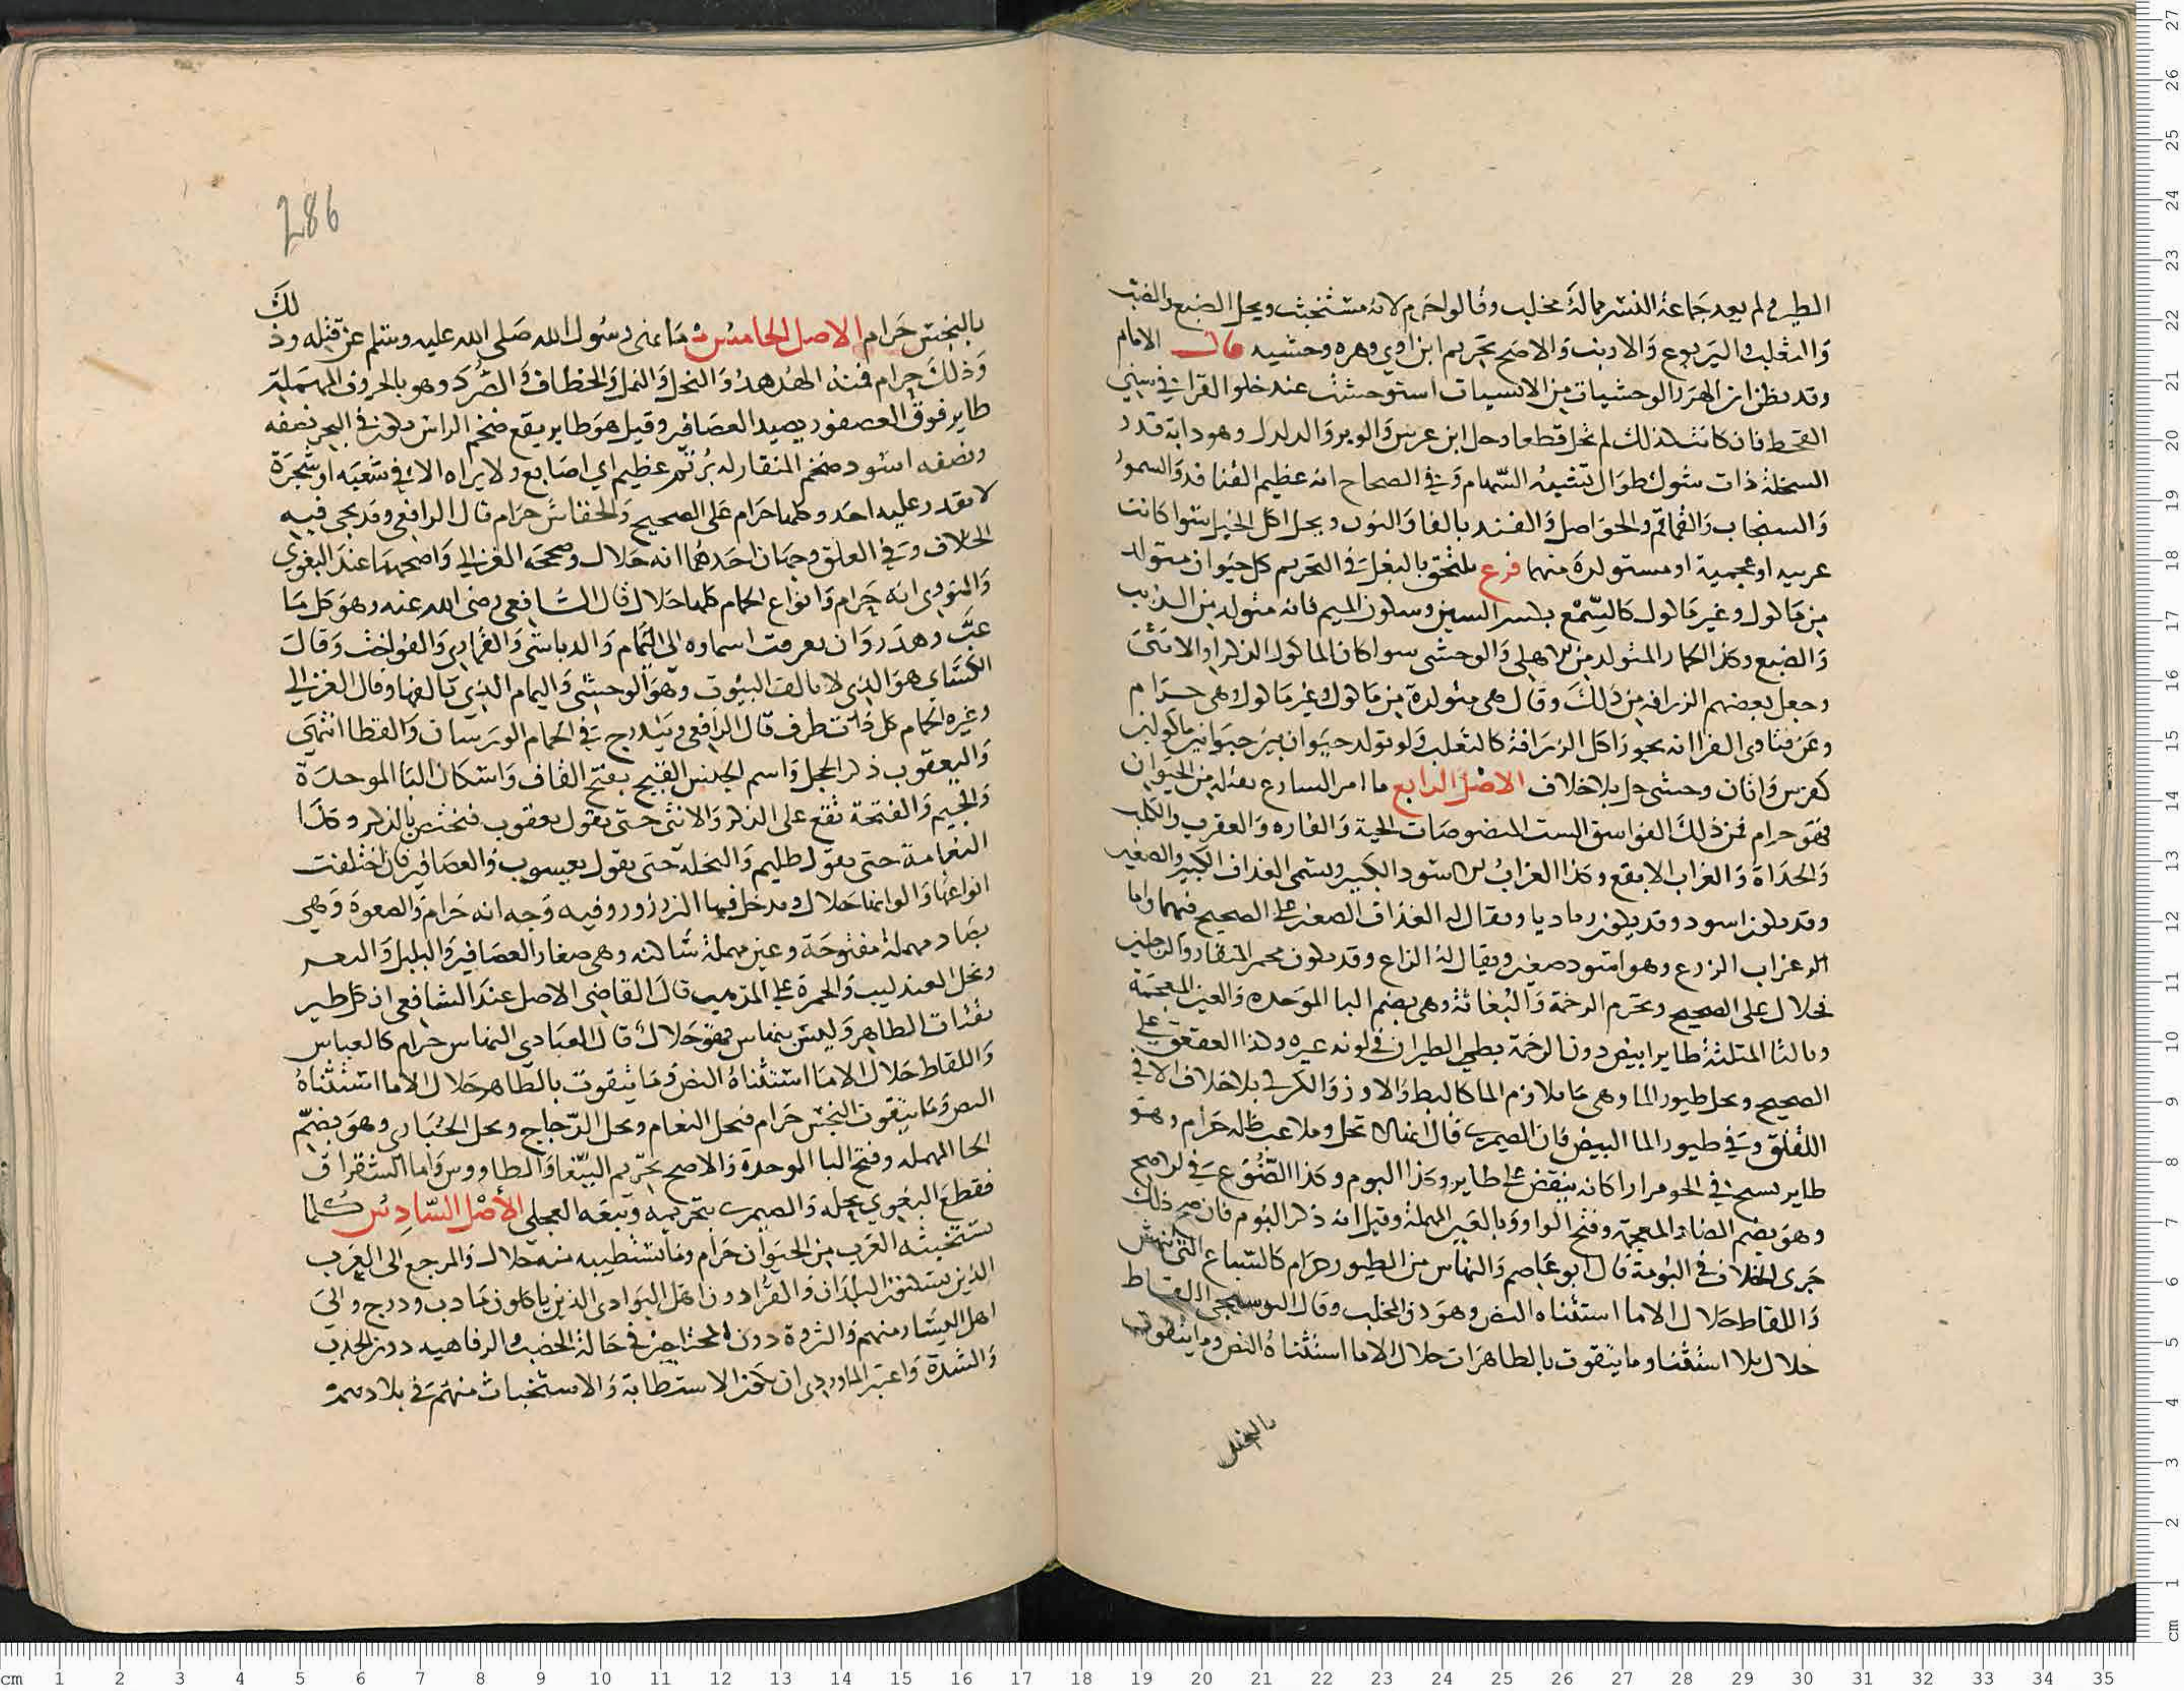 الطير ولم يعد جماعة النسر مما له مخلب وقالوا حرم لانه مستخبث ويحل الضبع والضب
والثعلب واليربوع والارنب والاصح تحريم ابن اوي وهره وحشيه قال الامام
وقد يظن ان الهرر الوحشيات من الانسيات استوحشت عند خلوا القرا في سني
القحط فان كانت كذلك لم تحل قطعا وحل ابن عرس والوبر والدلدل وهو دابة قدر
السخلة ذات شوك طوال تشبه السهام وفي الصحاح انه عظيم القنافد والسمور
والسنجاب والقماقم والحواصل والفنك بالفا والنون ويحل اكل الخيل سوا كانت
عربيه او عجمية او مستولدة منهما فرع يلتحق بالبغل في التحريم كل حيوان متولد
من ماكول وغير ماكول كالسمع بكسر السين وسكون الميم فانه متولد من الذيب
والضبع وكذا الحمار المتولد من الاهلي والوحشي سوا كان الماكول الذكر او الانثى
وجعل بعضهم الزرافه من ذلك وقال هي متولدة من ماكول وغير ماكول وهي حرام
وعن فتاوى الفرا انه يجوز اكل الزرافة كالثعلب ولو تولد حيوان بين حيوانين ماكولين
كفرس واتان وحشي حل بلا خلاف الاصل الرابع ما امر الشارع بقتله من الحيوان
فهو حرام فمن ذلك الفواسق الست المنصوصات الحية والفاره والعقرب والكلب
والحداة والغراب الابقع وكذا الغراب الاسود الكبير ويسمى الغداف الكبير والصغير
وقد يكون اسود وقد يكون رماديا ويقال له الغداف الصغير على الصحيح فيهما واما
الـ غراب الزرع وهو اسود صغير ويقال له الزاع وقد يكون محمر المنقار والرجلين
فحلال على الصحيح وتحرم الرخمة والبغاثة وهي بضم البا الموحده والغين المعجمة
وبالثا المثلثة طاير ابيض دون الرخمة بطي الطيران في لونه غبره وكذا العقعق على
الصحيح ويحل طيور الما وهي ما يلازم الما كالبط والاوز والكركي بلا خلاف الا في
اللقلق وفي طيور الما البيض فان الصيمري قال انها لا تحل وملاعب ظله حرام وهو
طاير يسبح في الجو مرارا كانه ينقض على طاير وكذا البوم وكذا الضوع في الاصح
وهو بضم الضاد المعجمة وفتح الواو وبالعين المهملة وقيل انه ذكر البوم فان صح ذلك
جرى الخلاف في البومة قال ابو عاصم والنهاس من الطيور حرام كالسباع التي تنهش
واللقاط حلال الا ما استثناه النص وهو ذو المخلب وقال البوسنجي اللقاط
حلال بلا استثنا وما يتقوت بالطاهرات حلال الا ما استثناه النص وما يتقوت
بالنجس
286
بالنجس حرام الاصل الخامس ما نهى رسول الله صلى الله عليه وسلم عن قتله وذلك
وذلك حرام فمنه الهدهد والنحل والنمل والخطاف والصرد وهو بالحروف المهملة
طاير فوق العصفور يصيد العصافير وقيل هو طاير بقع ضخم الراس يكون في البحر نصفه
ونصفه اسود ضخم المنقار له برثن عظيم اي اصابع ولا يراه الا في شعبه او شجرة
لا يقدر عليه احد وكلها حرام على الصحيح والخفاش حرام قال الرافعي وقد يجي فيه
الخلاف وفي العلق وجهان احدهما انه حلال وصححه الغزالي واصحهما عند البغوي
والنووي انه حرام وانواع الحمام كلها حلال قال الشافعي رضي الله عنه وهو كل ما
عب وهدر وان تفرقت اسماوه الى اليمام والدباسي والقماري والفواخت وقال
الكسائي هو الذي لا يالف البيوت وهو الوحشي واليمام الذي يالفها وقال الغزالي
وغيره الحمام كل ذات طرف قال الرافعي ويندرج في الحمام الورشان والقطا انتهى
واليعقوب ذكر الحجل واسم الجنس القبج بفتح القاف واسكان البا الموحدة
والجيم والفتحة تقع على الذكر والانثى حتى تقول يعقوب فتختص بالذكر وكذا
النعامة حتى يقول ظليم والنحلة حتى يقول يعسوب والعصافير وان اختلفت
انواعها والوانها حلال ويدخل فيها الزرزور وفيه وجه انه حرام والصعوة وهي
بصاد مهملة مفتوحة وعين مهملة ساكنه وهي صغار العصافير والبلبل والنغر
وتحل العندليب والحمرة على المذهب قال القاضي الاصل عند الشافعي ان كل طير
يقتات الطاهر وليس بنهاس فهو حلال قال العبادي النهاس حرام كالعباس
واللقاط حلال الا ما استثناه النص وما يتقوت بالطاهر حلال الا ما استثناه
النص وما يتقوت النجس حرام فتحل النعام ويحل الدجاج ويحل الحبارى وهو بضم
الحا المهمله وفتح البا الموحدة والاصح تحريم الببغا والطاووس واما الشقراق
فقطع البغوي بحله والصيمري بتحريمه وتبعه العجلي الأصل السادس كلما
تستخبثه العرب من الحيوان حرام وما تستطيبه منه حلال والمرجع الى العرب
الذين يسكنون البلدان والقرا دون اهل البوادي الذين ياكلون ما دب ودرج والى
اهل اليسار منهم والثروة دون المحتاجين في حالة الخصب والرفاهيه دون الجدب
والشدة واعتبر الماوردي ان يكون الاستطابة والاستخباث منهم في بلادهم